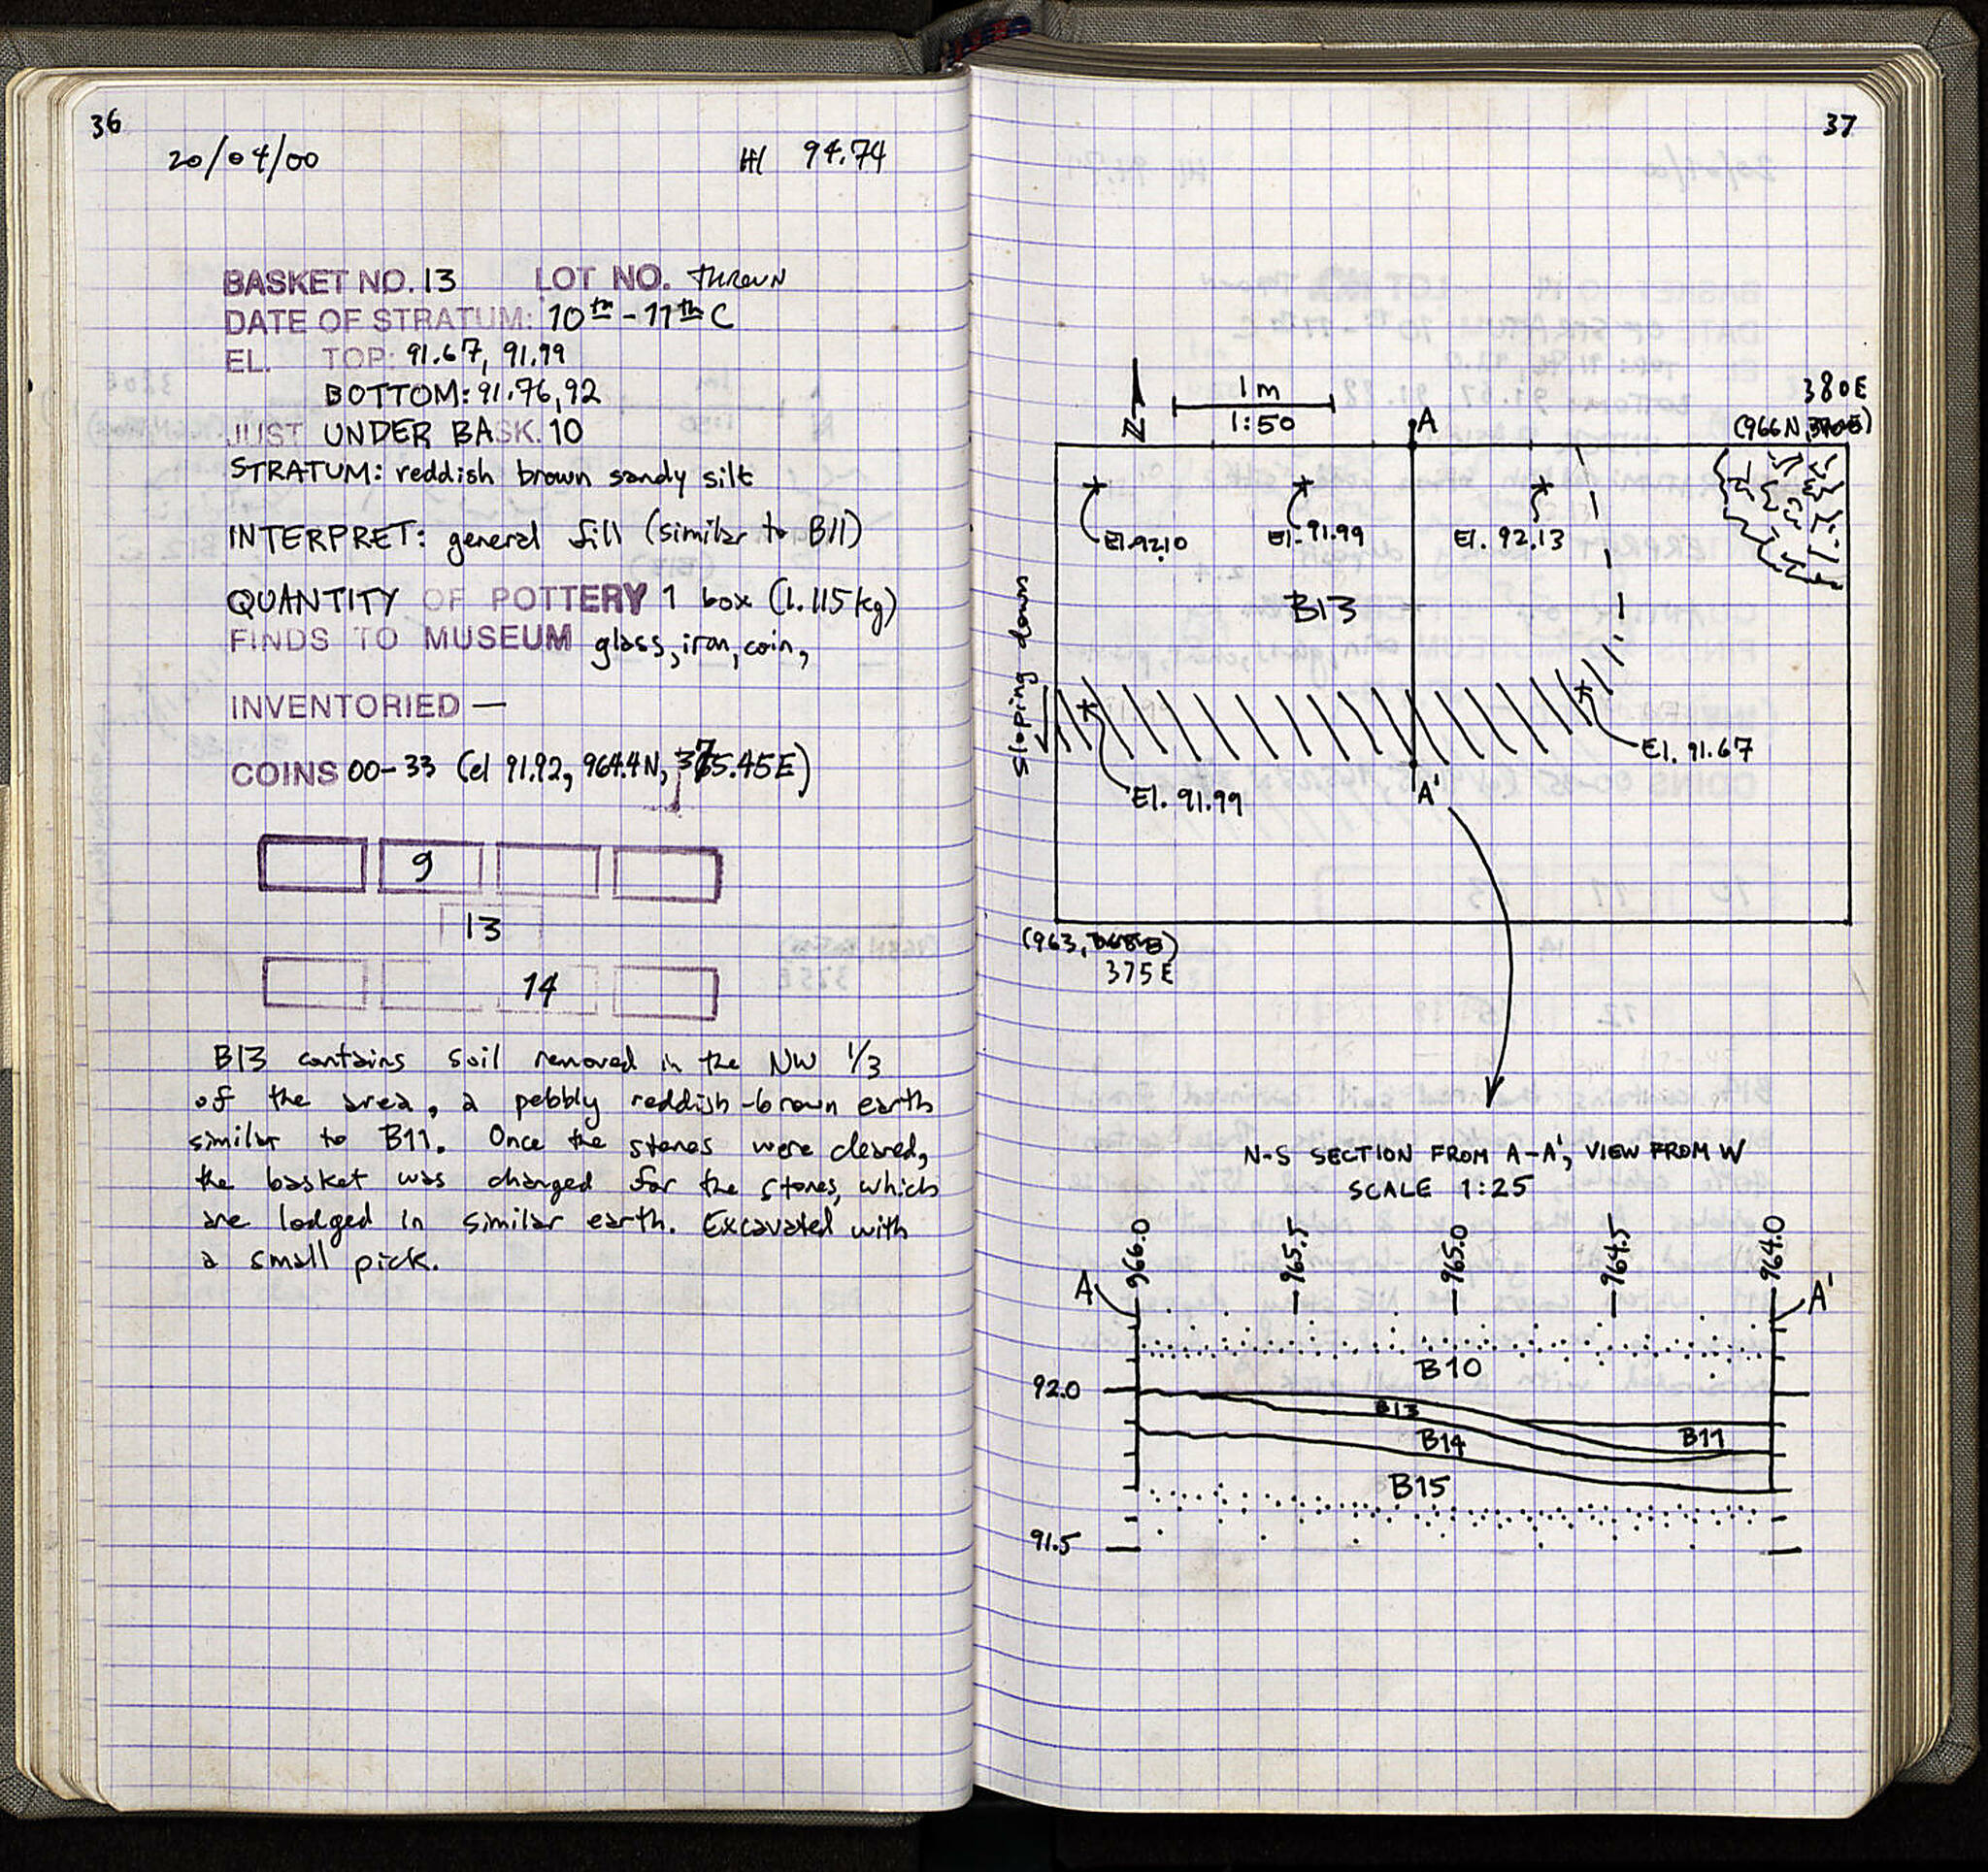 36
20/04/00 HI 94.74
BASKET NO. 13 LOT NO. THROWN
DATE OF STRATUM: 10th - 11th C
EL. TOP: 91.67, 91.99
BOTTOM: 91.76, 92
JUST UNDER BASK. 10
STRATUM: reddish brown sandy silt
INTERPRET: general fill (similar to B11)
QUANTITY OF POTTERY 1 box (1.115 kg)
FINDS TO MUSEUM glass, iron, coin,
INVENTORIED —
COINS 00-33 (el 91.92, 964.4N, 375.45E)
9
13
14
B13 contains soil removed in the NW 1/3
of the area, a pebbly reddish-brown earth
similar to B11. Once the stones were cleared,
the basket was changed for the stones, which
are lodged in similar earth. Excavated with
a small pick.
37
N
1 m
1:50
A
380E
(966N,
El. 92.10
El. 91.99
El. 92.13
B13
sloping down
El. 91.67
El. 91.99
A'
(963,
375E
N-S SECTION FROM A-A', VIEW FROM W
SCALE 1:25
966.0 965.5 965.0 964.5 964.0
A A'
B10
92.0
B13
B14 B11
B15
91.5